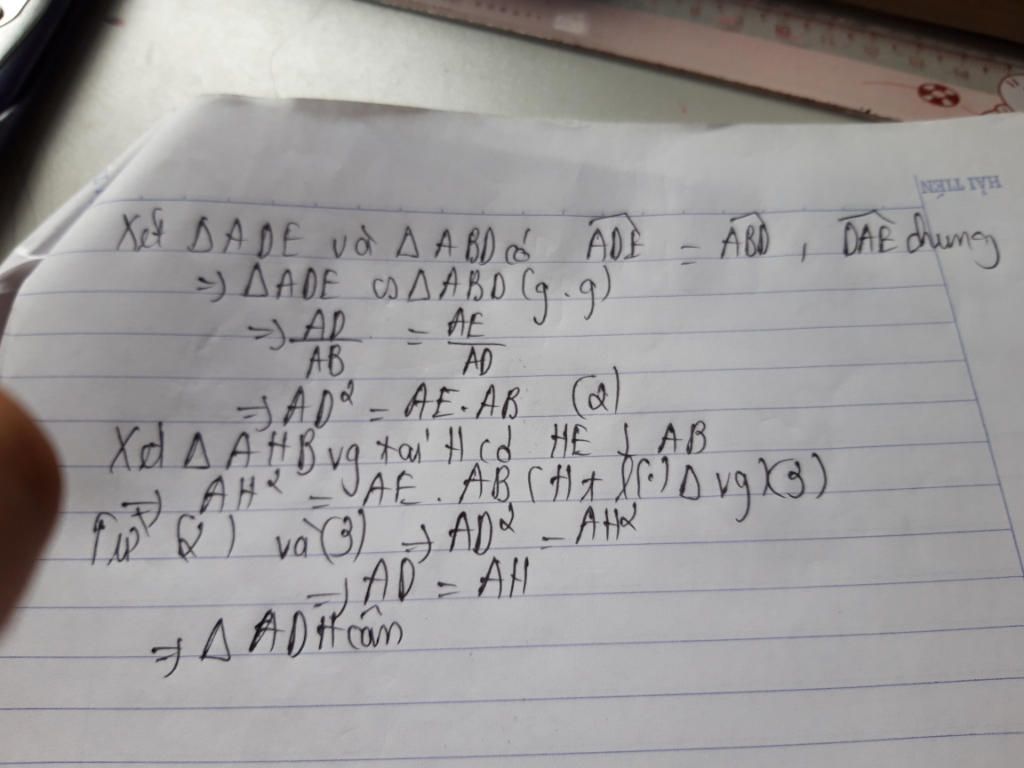 HẢI TIẾN
Xét ΔADE và ΔABD có ADE = ABD, DAE chung
=) ΔADE ∽ ΔABD (g.g)
=) AD/AB = AE/AD
=) AD² = AE.AB (2)
Xét ΔAHB vg tại H có HE ⊥ AB
=) AH² = AE.AB (Ht l(.) Δ vg)(3)
Từ (2) và (3) =) AD² = AH²
=) AD = AH
=) ΔADH cân